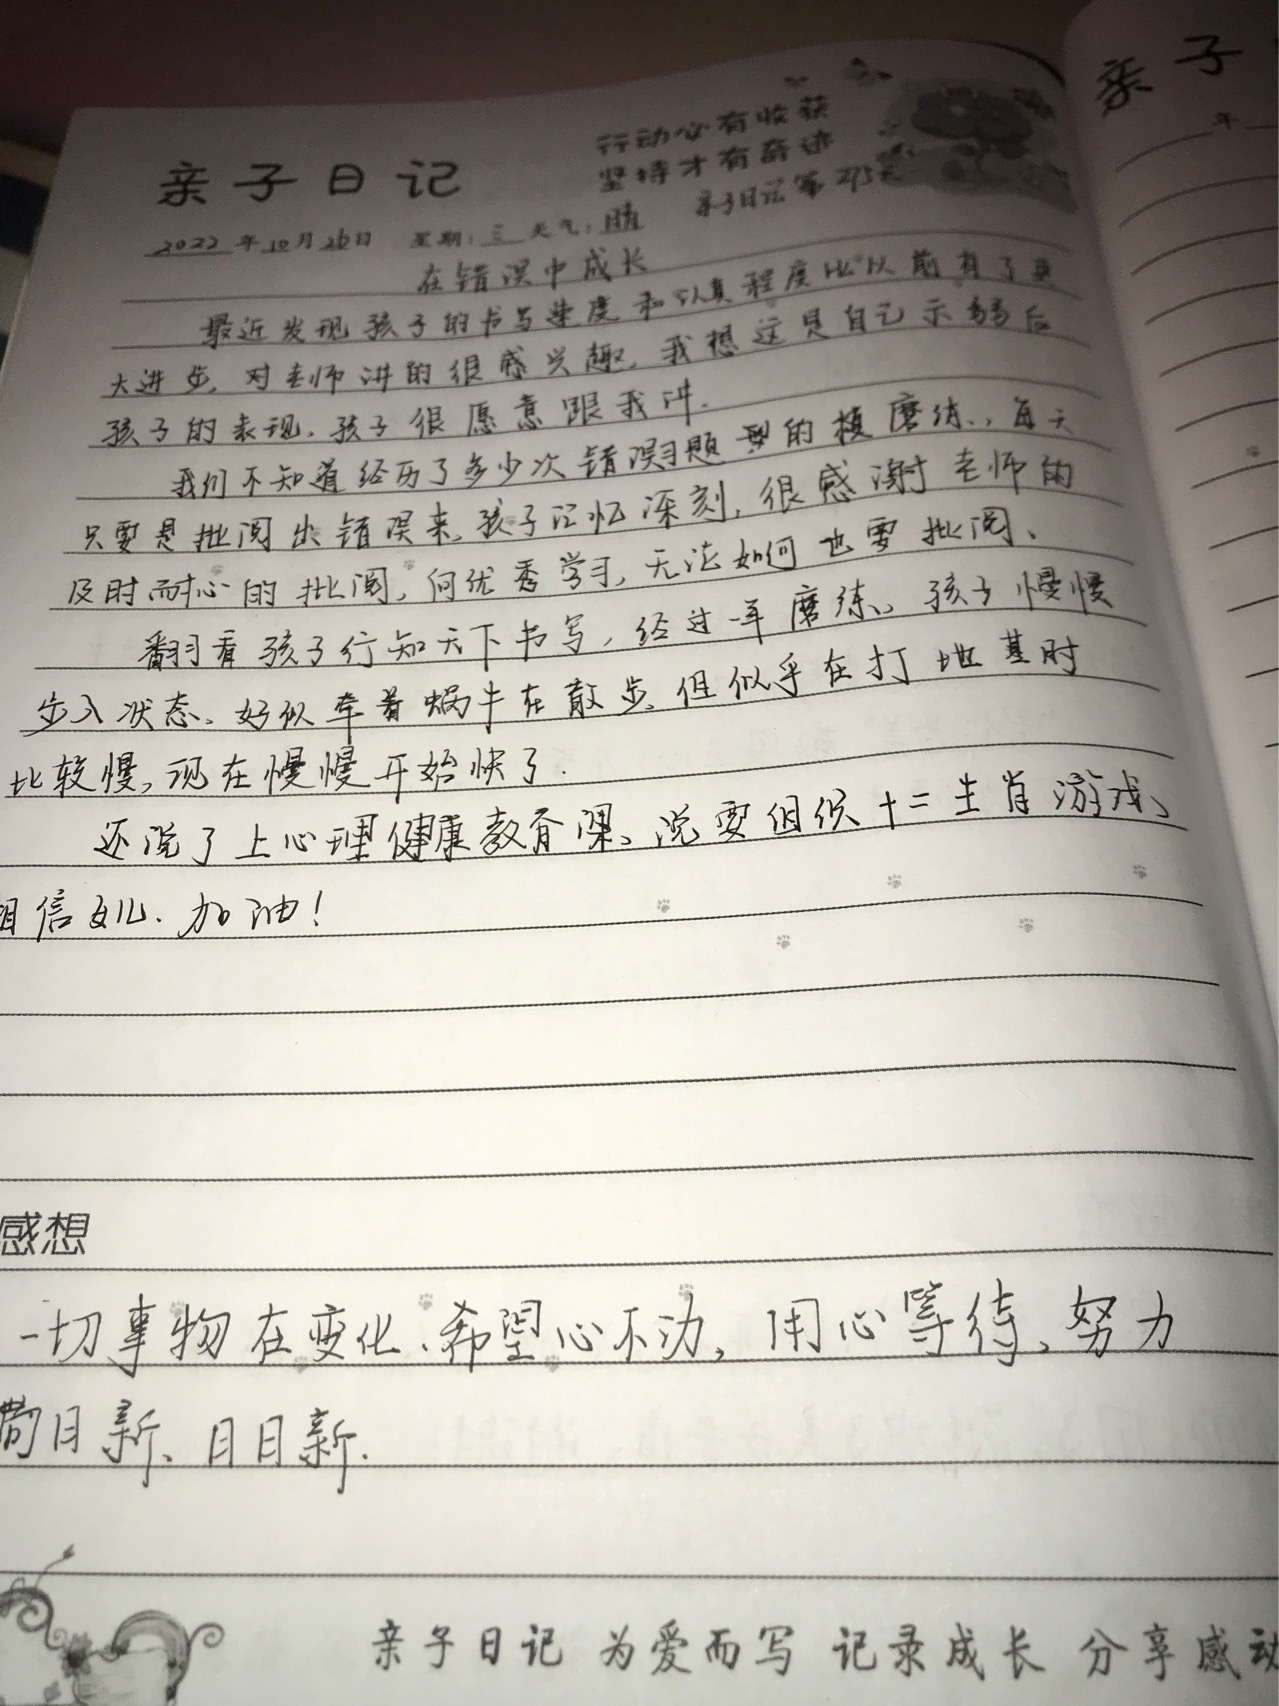 亲子日记
行动必有收获
坚持才有奇迹
亲子日记第275天
2022年10月26日 星期:三 天气:晴
在错误中成长
最近发现孩子的书写速度和认真程度比以前有了更
大进步,对老师讲的很感兴趣,我想这是自己示弱后
孩子的表现、孩子很愿意跟我讲.
我们不知道经历了多少次错误习题 的 磨练、,每天
只要是批阅出错误来,孩子记忆深刻,很感谢老师的
及时耐心的批阅,何优秀学习,无论如何也要批阅、
翻看孩子行知天下书写,经过一年磨练、孩子慢慢
步入状态、好似牵着蜗牛在散步,但似乎在打地基时
比较慢,现在慢慢开始快了.
还说了上心理健康教育课、说要组织十二生肖游戏、
相信女儿.加油!
感想
一切事物在变化.希望心不动,用心等待、努力
日新、日日新.
亲子日记 为爱而写 记录成长 分享感动
亲子
年